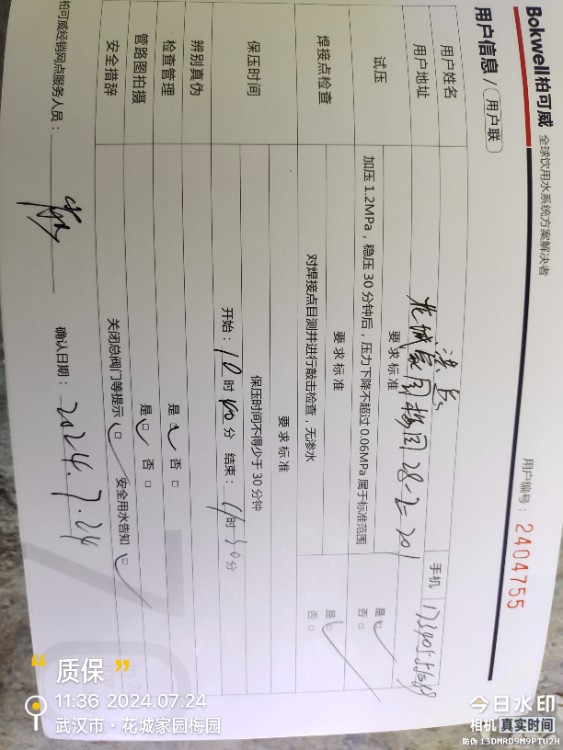 Bokwell柏可威 全球饮用水系统方案解决者
用户编号：2404755
用户信息/用户联
用户姓名
手机
用户地址 花城家园梅园28-2-201
试压
要求标准
加压1.2MPa，稳压30分钟后，压力下降不超过0.06MPa属于标准范围
是 ✓
否 □
焊接点检查
要求标准
对焊接点目测并进行敲击检查，无渗水
是 ✓
否 □
保压时间
要求标准
保压时间不得少于30分钟
开始：10时00分 结束：11时30分
辨别真伪
检查管理 是 ✓ 否 □
管路图拍摄 是 ✓ 否 □
安全措辞 关闭总阀门等提示 ✓ 安全用水告知 ✓
柏可威经销网点服务人员：
确认日期：2024.7.24
“质保”
11:36 2024.07.24
武汉市·花城家园梅园
今日水印
相机 真实时间
防伪 13DMRD9M9PTU2H